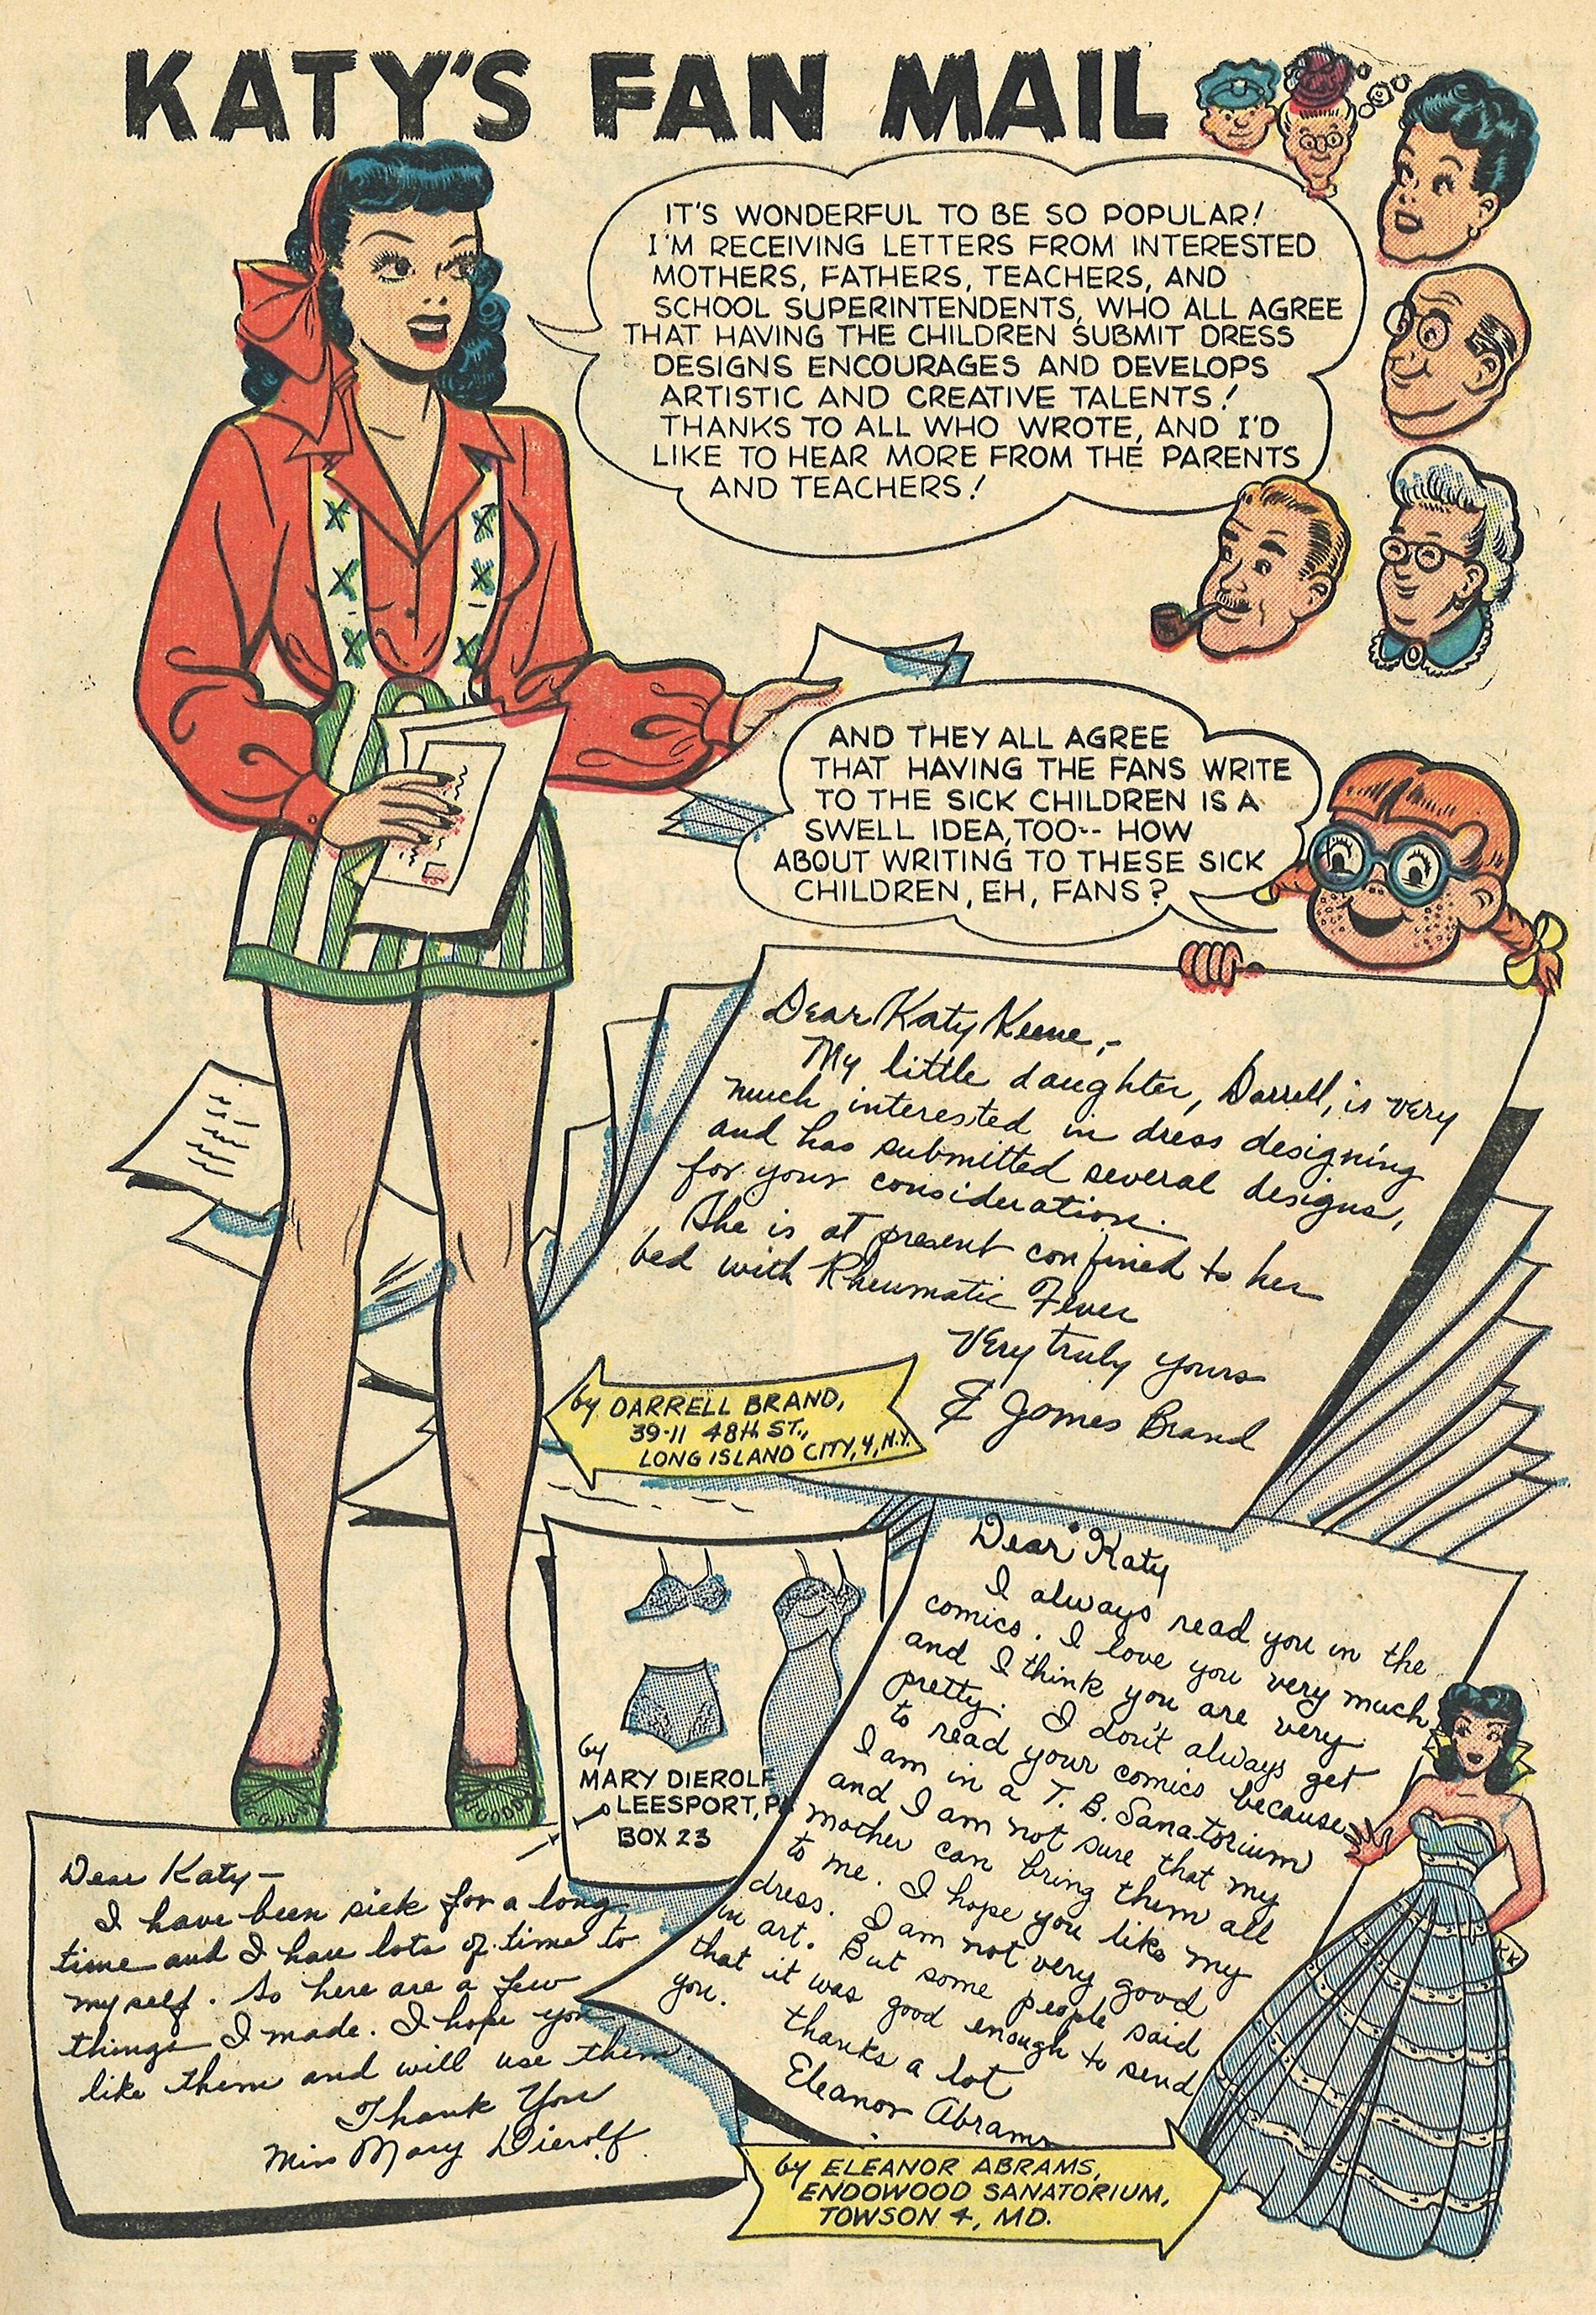 KATY'S FAN MAIL
IT'S WONDERFUL TO BE SO POPULAR!
I'M RECEIVING LETTERS FROM INTERESTED
MOTHERS, FATHERS, TEACHERS, AND
SCHOOL SUPERINTENDENTS, WHO ALL AGREE
THAT HAVING THE CHILDREN SUBMIT DRESS
DESIGNS ENCOURAGES AND DEVELOPS
ARTISTIC AND CREATIVE TALENTS!
THANKS TO ALL WHO WROTE, AND I'D
LIKE TO HEAR MORE FROM THE PARENTS
AND TEACHERS!
AND THEY ALL AGREE
THAT HAVING THE FANS WRITE
TO THE SICK CHILDREN IS A
SWELL IDEA, TOO-- HOW
ABOUT WRITING TO THESE SICK
CHILDREN, EH, FANS?
Dear Katy Keene,-
My little daughter, Darrell, is very
much interested in dress designing
and has submitted several designs,
for your consideration.
She is at present confined to her
bed with Rheumatic Fever
Very truly yours
E James Brand
by DARRELL BRAND,
39-11 48th ST.,
LONG ISLAND CITY, 4, N.Y.
by
MARY DIEROLF
LEESPORT, PA
BOX 23
Dear Katy
I always read you in the
comics. I love you very much
and I think you are very
pretty. I don't always get
to read your comics because
I am in a T. B. Sanatorium
and I am not sure that my
mother can bring them all
to me. I hope you like my
dress. I am not very good
in art. But some people said
that it was good enough to send
you.
thanks a lot
Eleanor Abrams
KK
Dear Katy—
I have been sick for a long
time and I have lots of time to
myself. So here are a few
things I made. I hope you
like them and will use them.
Thank You
Miss Mary Dierolf
by ELEANOR ABRAMS,
ENDOWOOD SANATORIUM,
TOWSON 4, MD.